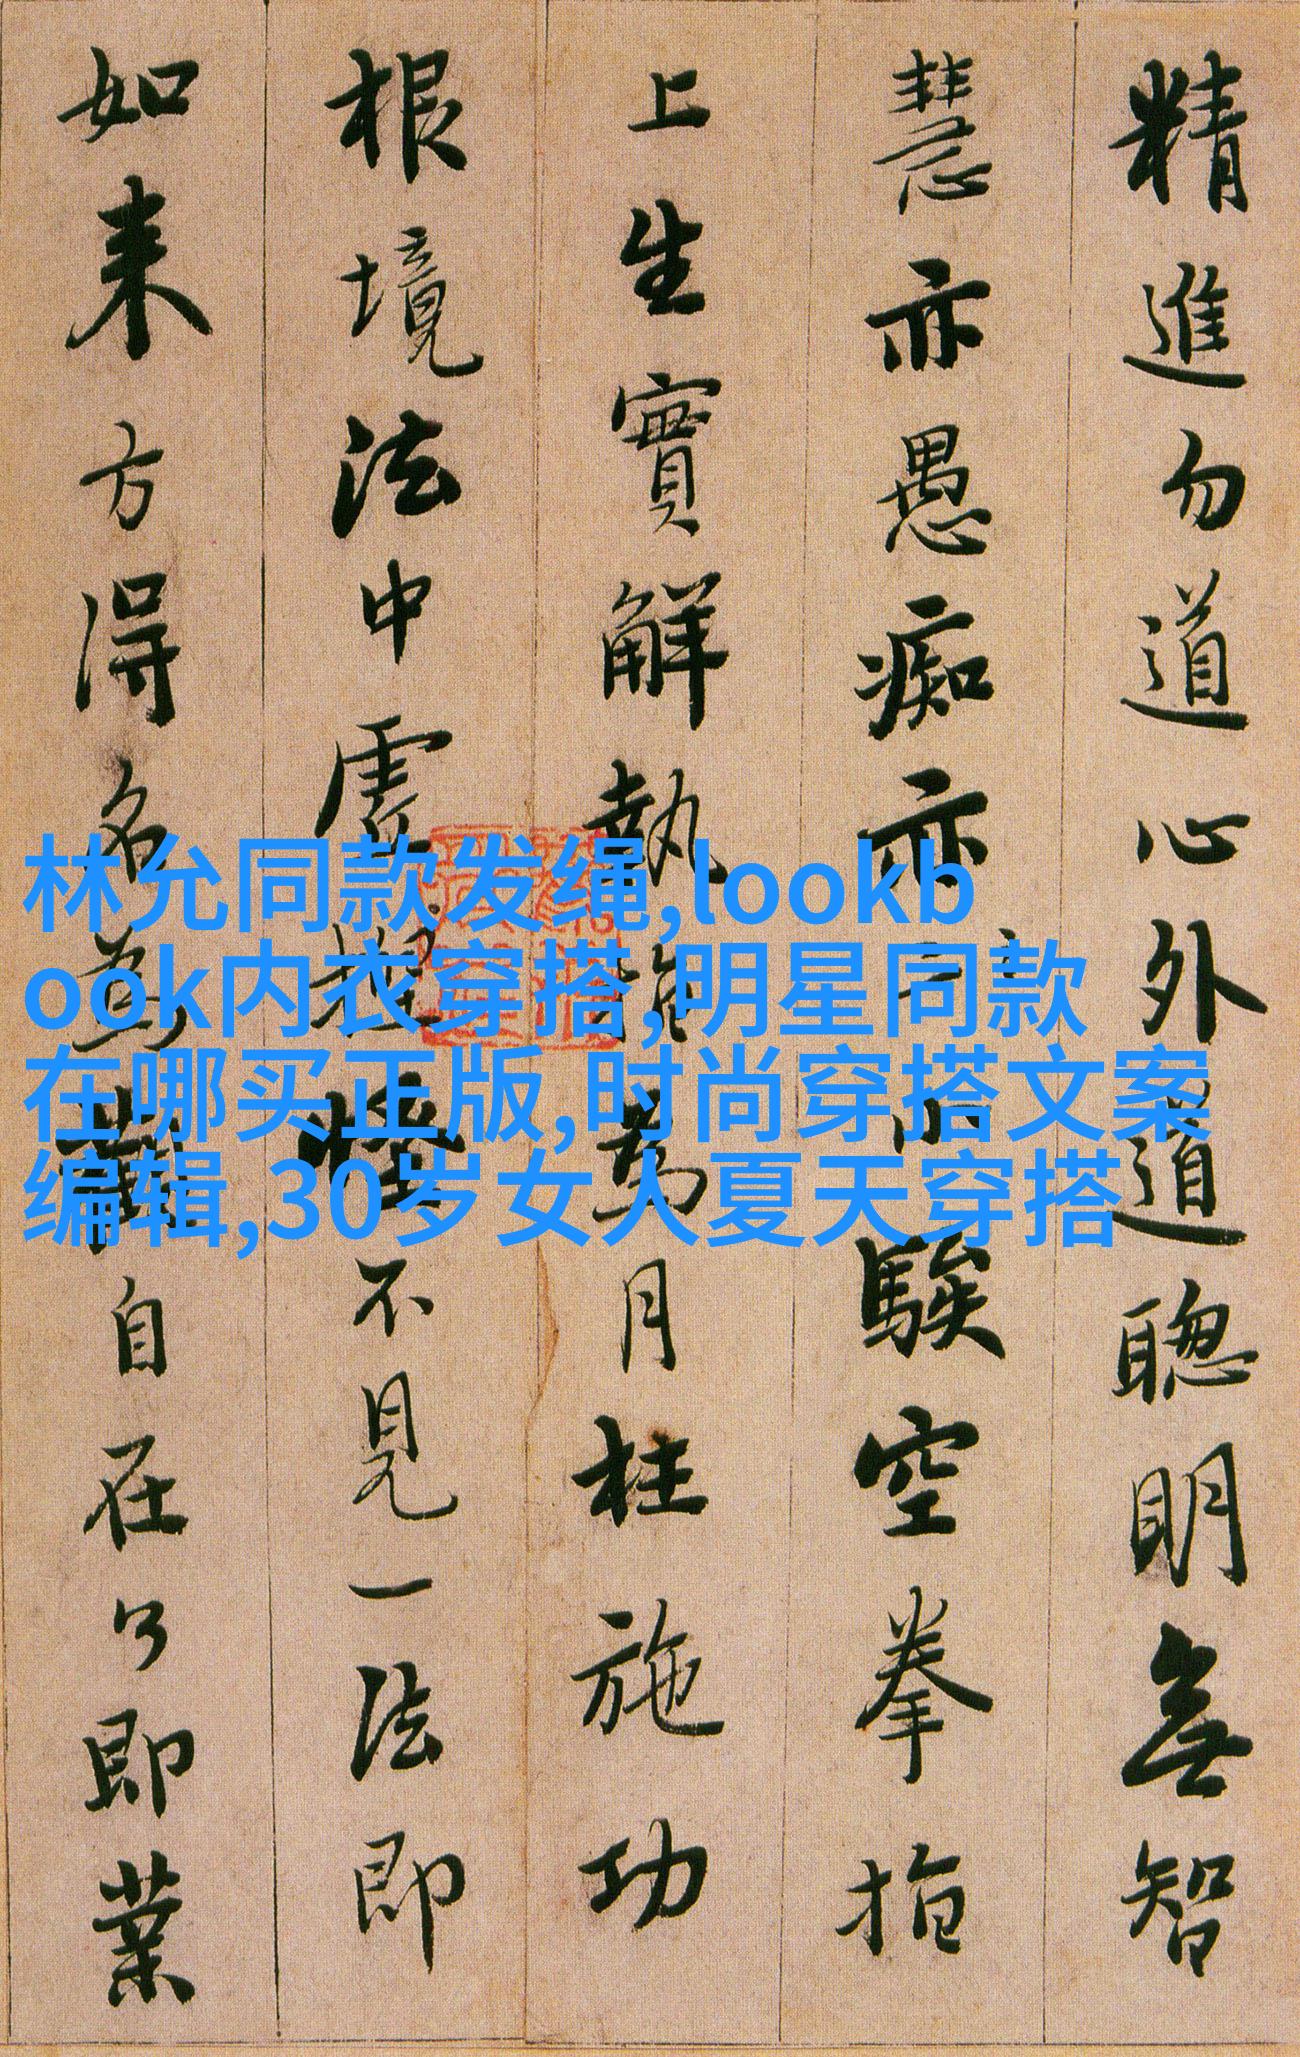 精進勿道心外道聰明無智
慧亦愚癡亦小騃空拳指
上生實解執為月枉施功
根境法中虛捏怪不見一法即
如來方得名為觀自在了即業
林允同款发绳,lookb
ook内衣穿搭,明星同款
在哪买正版,时尚穿搭文案
编辑,30岁女人夏天穿搭